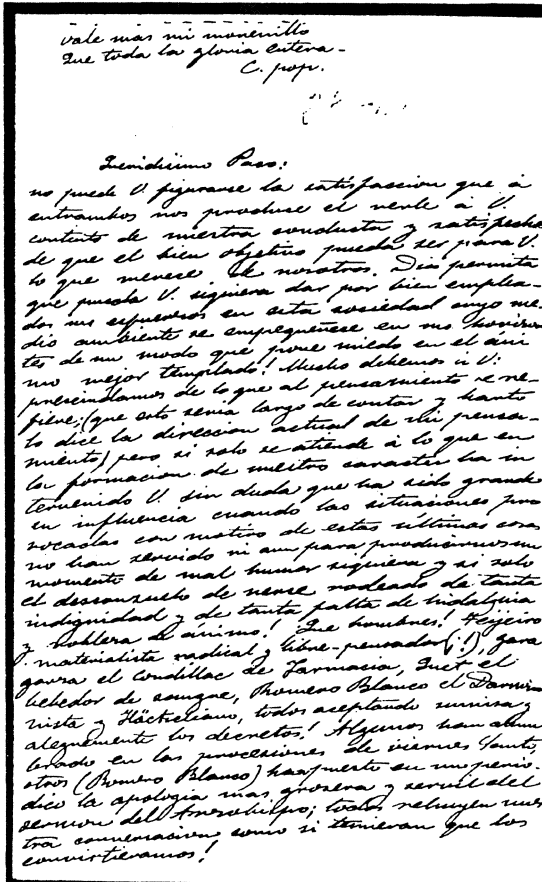 vale mas mi morenillo
Que toda la gloria entera -
C. pop.
Queridisimo Paco:
no puede V. figurarse la satisfaccion que á
entrambos nos produce el verle á V.
contento de nuestra conducta y satisfecho
de que el bien objetivo pueda ser para V.
lo que merece de nosotros. Dios permita
que pueda V. siquiera dar por bien emplea-
dos sus esfuerzos en esta sociedad cuyo me-
dio ambiente se empequeñese en sus horizon
tes de un modo que pone miedo en el áni
mo mejor templado! Mucho debemos á V:
prescindamos de lo que al pensamiento se re-
fiere; (que esto seria largo de contar y harto
lo dice la direccion actual de mi pensa-
miento) pero si solo se atiende á lo que en
la formacion de nuestro caracter ha in
tervenido V. sin duda que ha sido grande
su influencia cuando las situaciones pro
vocadas con motivo de estas ultimas cosas
no han servido ni aun para producirnos un
momento de mal humor siquiera y si solo
el desconsuelo de verse rodeado de tanta
indignidad y de tanta falta de hidalguia
y nobleza de ánimo! Que hombres! Teijeiro
materialista radical y libre-pensador (¡!), gara
garza el Condillac de Farmacia, Fuet el
bebedor de sangre, Romero Blanco el Darwi
nista y Häckeliano, todos aceptando sumisa y
alegremente los decretos! Algunos han alum
brado en las procesiones de viernes Santo,
otros (Romero Blanco) han puesto en un perio-
dico la apologia mas grosera y servil del
sermon del Arzobispo; todos rehuyen nues
tra conversacion como si temieran que los
convirtieramos!